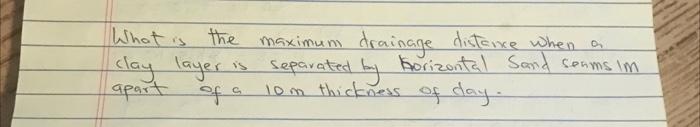 What is the maximum drainage distance when a
clay layer is separated by horizontal Sand seams 1m
apart of a 10m thickness of clay.